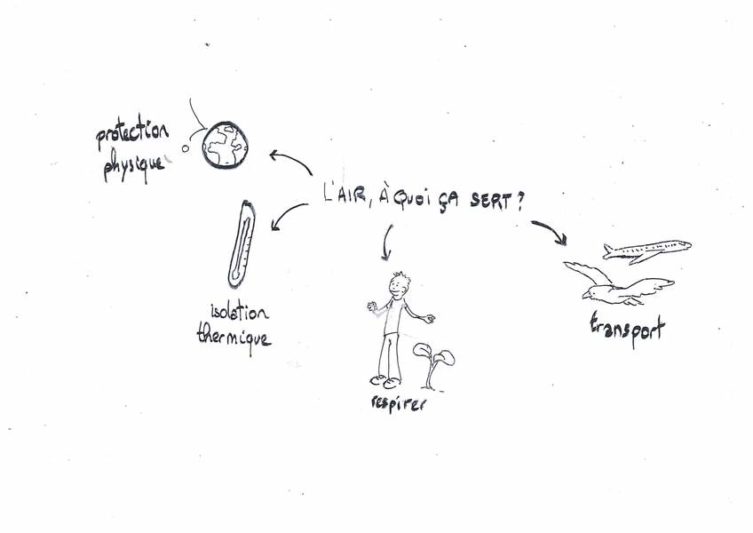 protection
physique
L'AIR, À QUOI ÇA SERT ?
isolation
thermique
respirer
transport